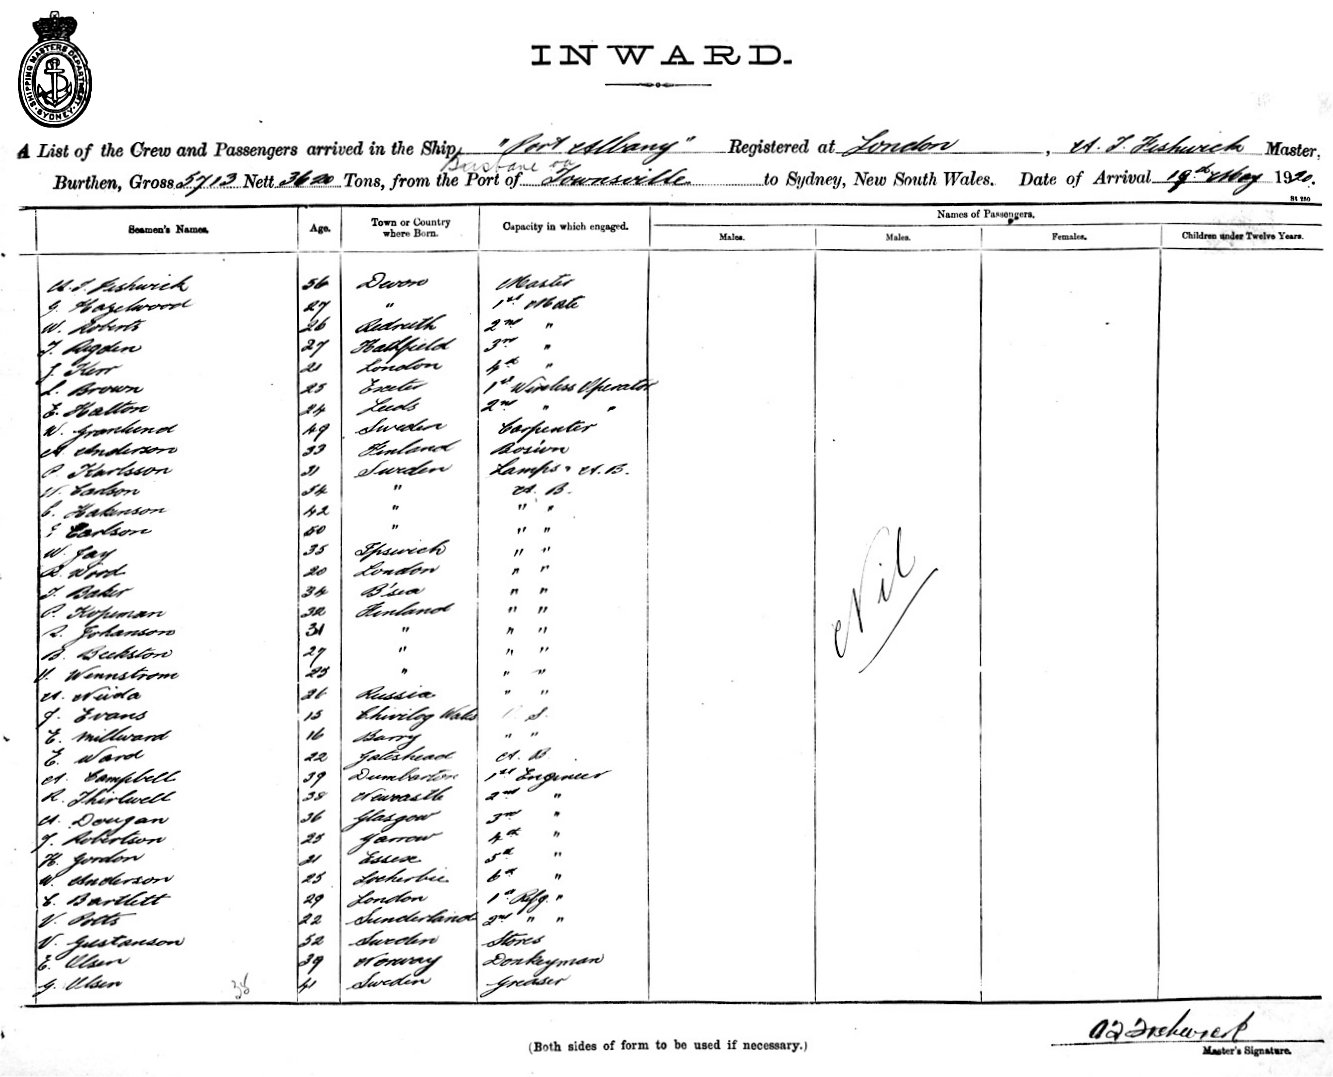 SHIPPING MASTERS DEPARTMENT SYDNEY
INWARD.
A List of the Crew and Passengers arrived in the Ship, "Port Albany" Registered at London, A. T. Fishwick Master,
Brisbane or
Burthen, Gross 5713 Nett 3620 Tons, from the Port of Townsville to Sydney, New South Wales. Date of Arrival 19th May 1920.
St 250
Seamen's Names. Age. Town or Country where Born. Capacity in which engaged. Names of Passengers.
Males. Males. Females. Children under Twelve Years.
A. T. Fishwick 56 Devon Master
J. Hazelwood 27 " 1st Mate
W. Roberts 26 Redruth 2nd "
T. Rigden 27 Hathfield 3rd "
J. Kerr 21 London 4th "
L. Brown 25 Exeter 1st Wireless Operator
E. Hatton 24 Leeds 2nd " "
W. Granlund 49 Sweden Carpenter
A. Anderson 33 Finland Bos'wn
P. Karlsson 31 Sweden Lamps & A.B.
Carlson 34 " A. B.
C. Hakinson 42 " " "
Carlson 50 " " "
W. Jay 35 Ipswich " "
R. Wood 20 London " "
T. Baker 34 B'sea " "
P. Kopman 32 Finland " "
Johanson 31 " " "
B. Beckston 27 " " "
Wennstrom 25 " " "
A. Niida 26 Russia " "
J. Evans 15 Chivilog Wales S.
E. Millward 16 Barry " "
E. Ward 22 Gateshead A. B.
A. Campbell 39 Dumbarton 1st Engineer
R. Thirlwell 38 Newcastle 2nd "
A. Dougan 36 Glasgow 3rd "
J. Robertson 25 Yarrow 4th "
H. Gordon 21 Essex 5th "
W. Anderson 25 Lockerbie 6th "
C. Bartlett 29 London 1st Rfg. "
V. Potts 22 Sunderland 2nd " "
V. Gustanson 52 Sweden Stores
E. Olsen 39 Norway Donkeyman
G. Olsen 41 Sweden Greaser
Nil
38
A T Fishwick
(Both sides of form to be used if necessary.)
Master's Signature.